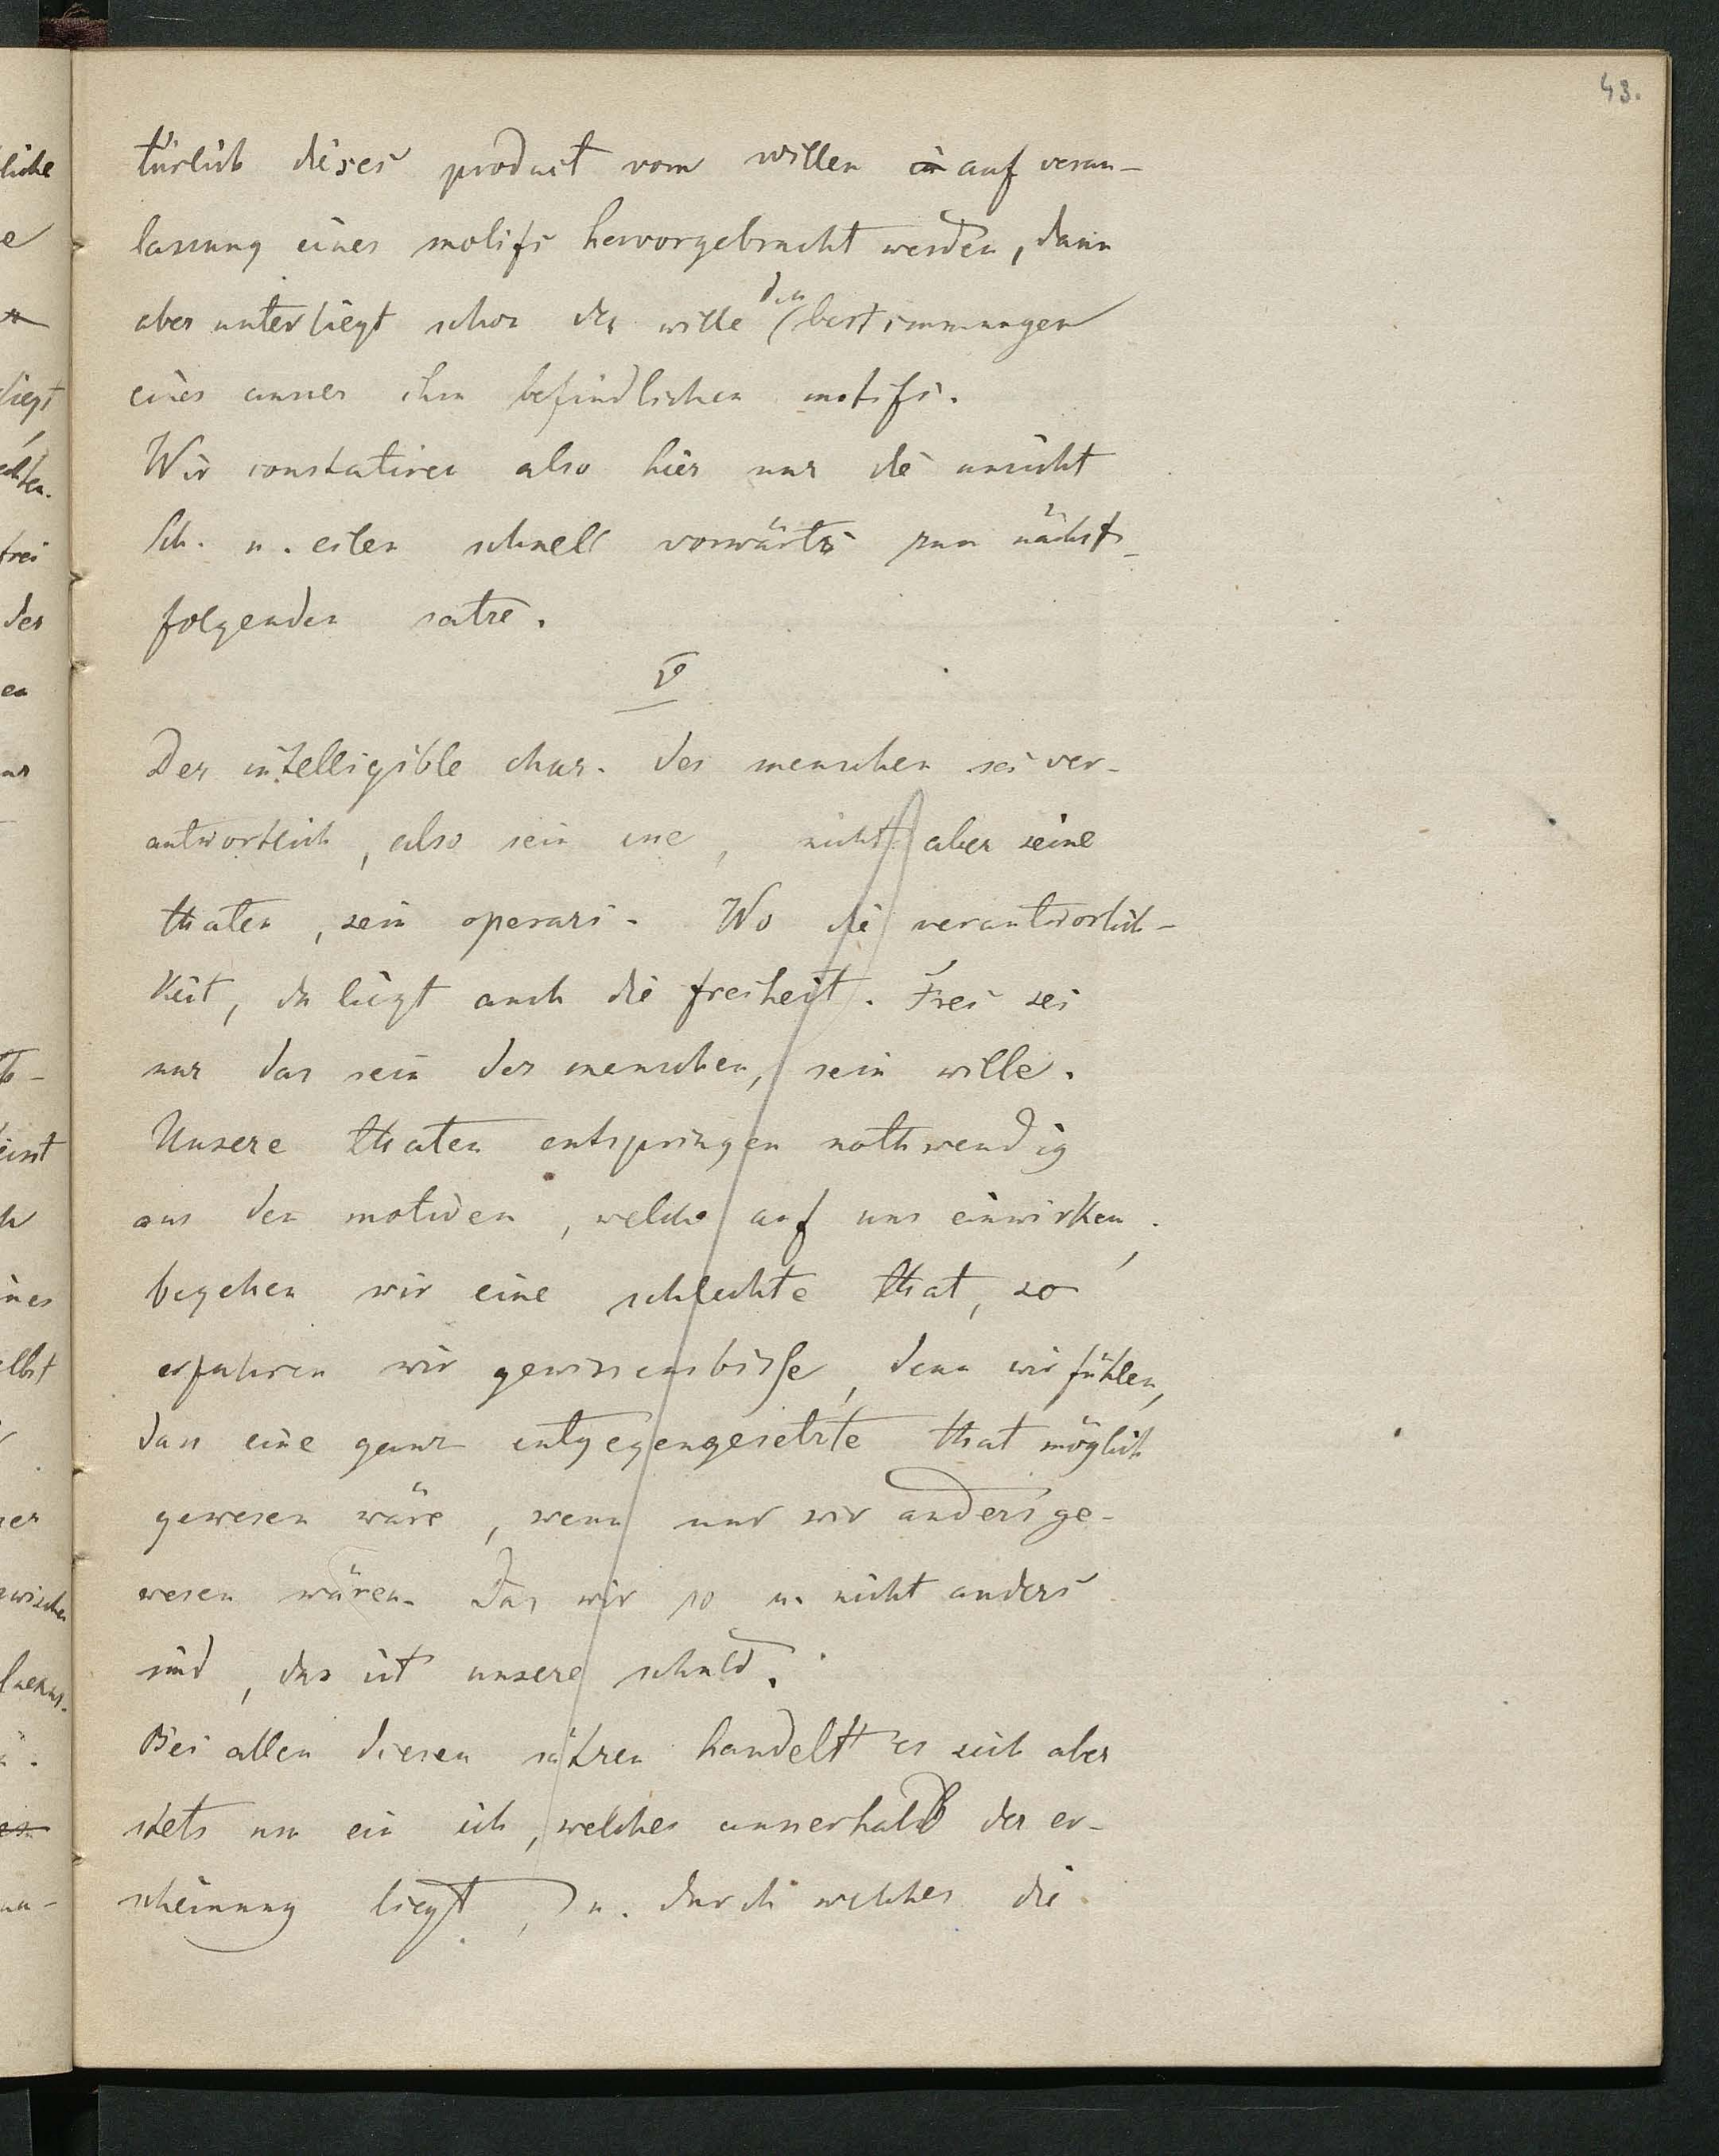 43.
türlich dieses product vom willen in auf veran-
lassung eines motifs hervorgebracht werden, dann
aber unterliegt schon der wille den bestimmungen
eines ausser ihm befindlichen motifs.
Wir constatiren also hier nur die ansicht
Sch. u. eilen schnell vorwärts zum nächst-
folgenden satze.
V
Der intelligible char. des menschen sei ver-
antwortlich, also sein esse, nicht aber seine
thaten, sein operari. Wo die verantwortlich-
keit, da liegt auch die freiheit. Frei sei
nur das sein des menschen, sein wille.
Unsere thaten entspringen nothwendig
aus den motiven, welche auf uns einwirken,
begehen wir eine schlechte that, so
erfahren wir gewissensbisse, denn wir fühlen,
dass eine ganz entgegengesetzte that möglich
gewesen wäre, wenn nur wir anders ge-
wesen wären. Das wir so u. nicht anders
sind, das ist unsere schuld.
Bei allen diesen sätzen handelt es sich aber
stets um ein ich, welches ausserhalb der er-
scheinung liegt, u. durch welches die